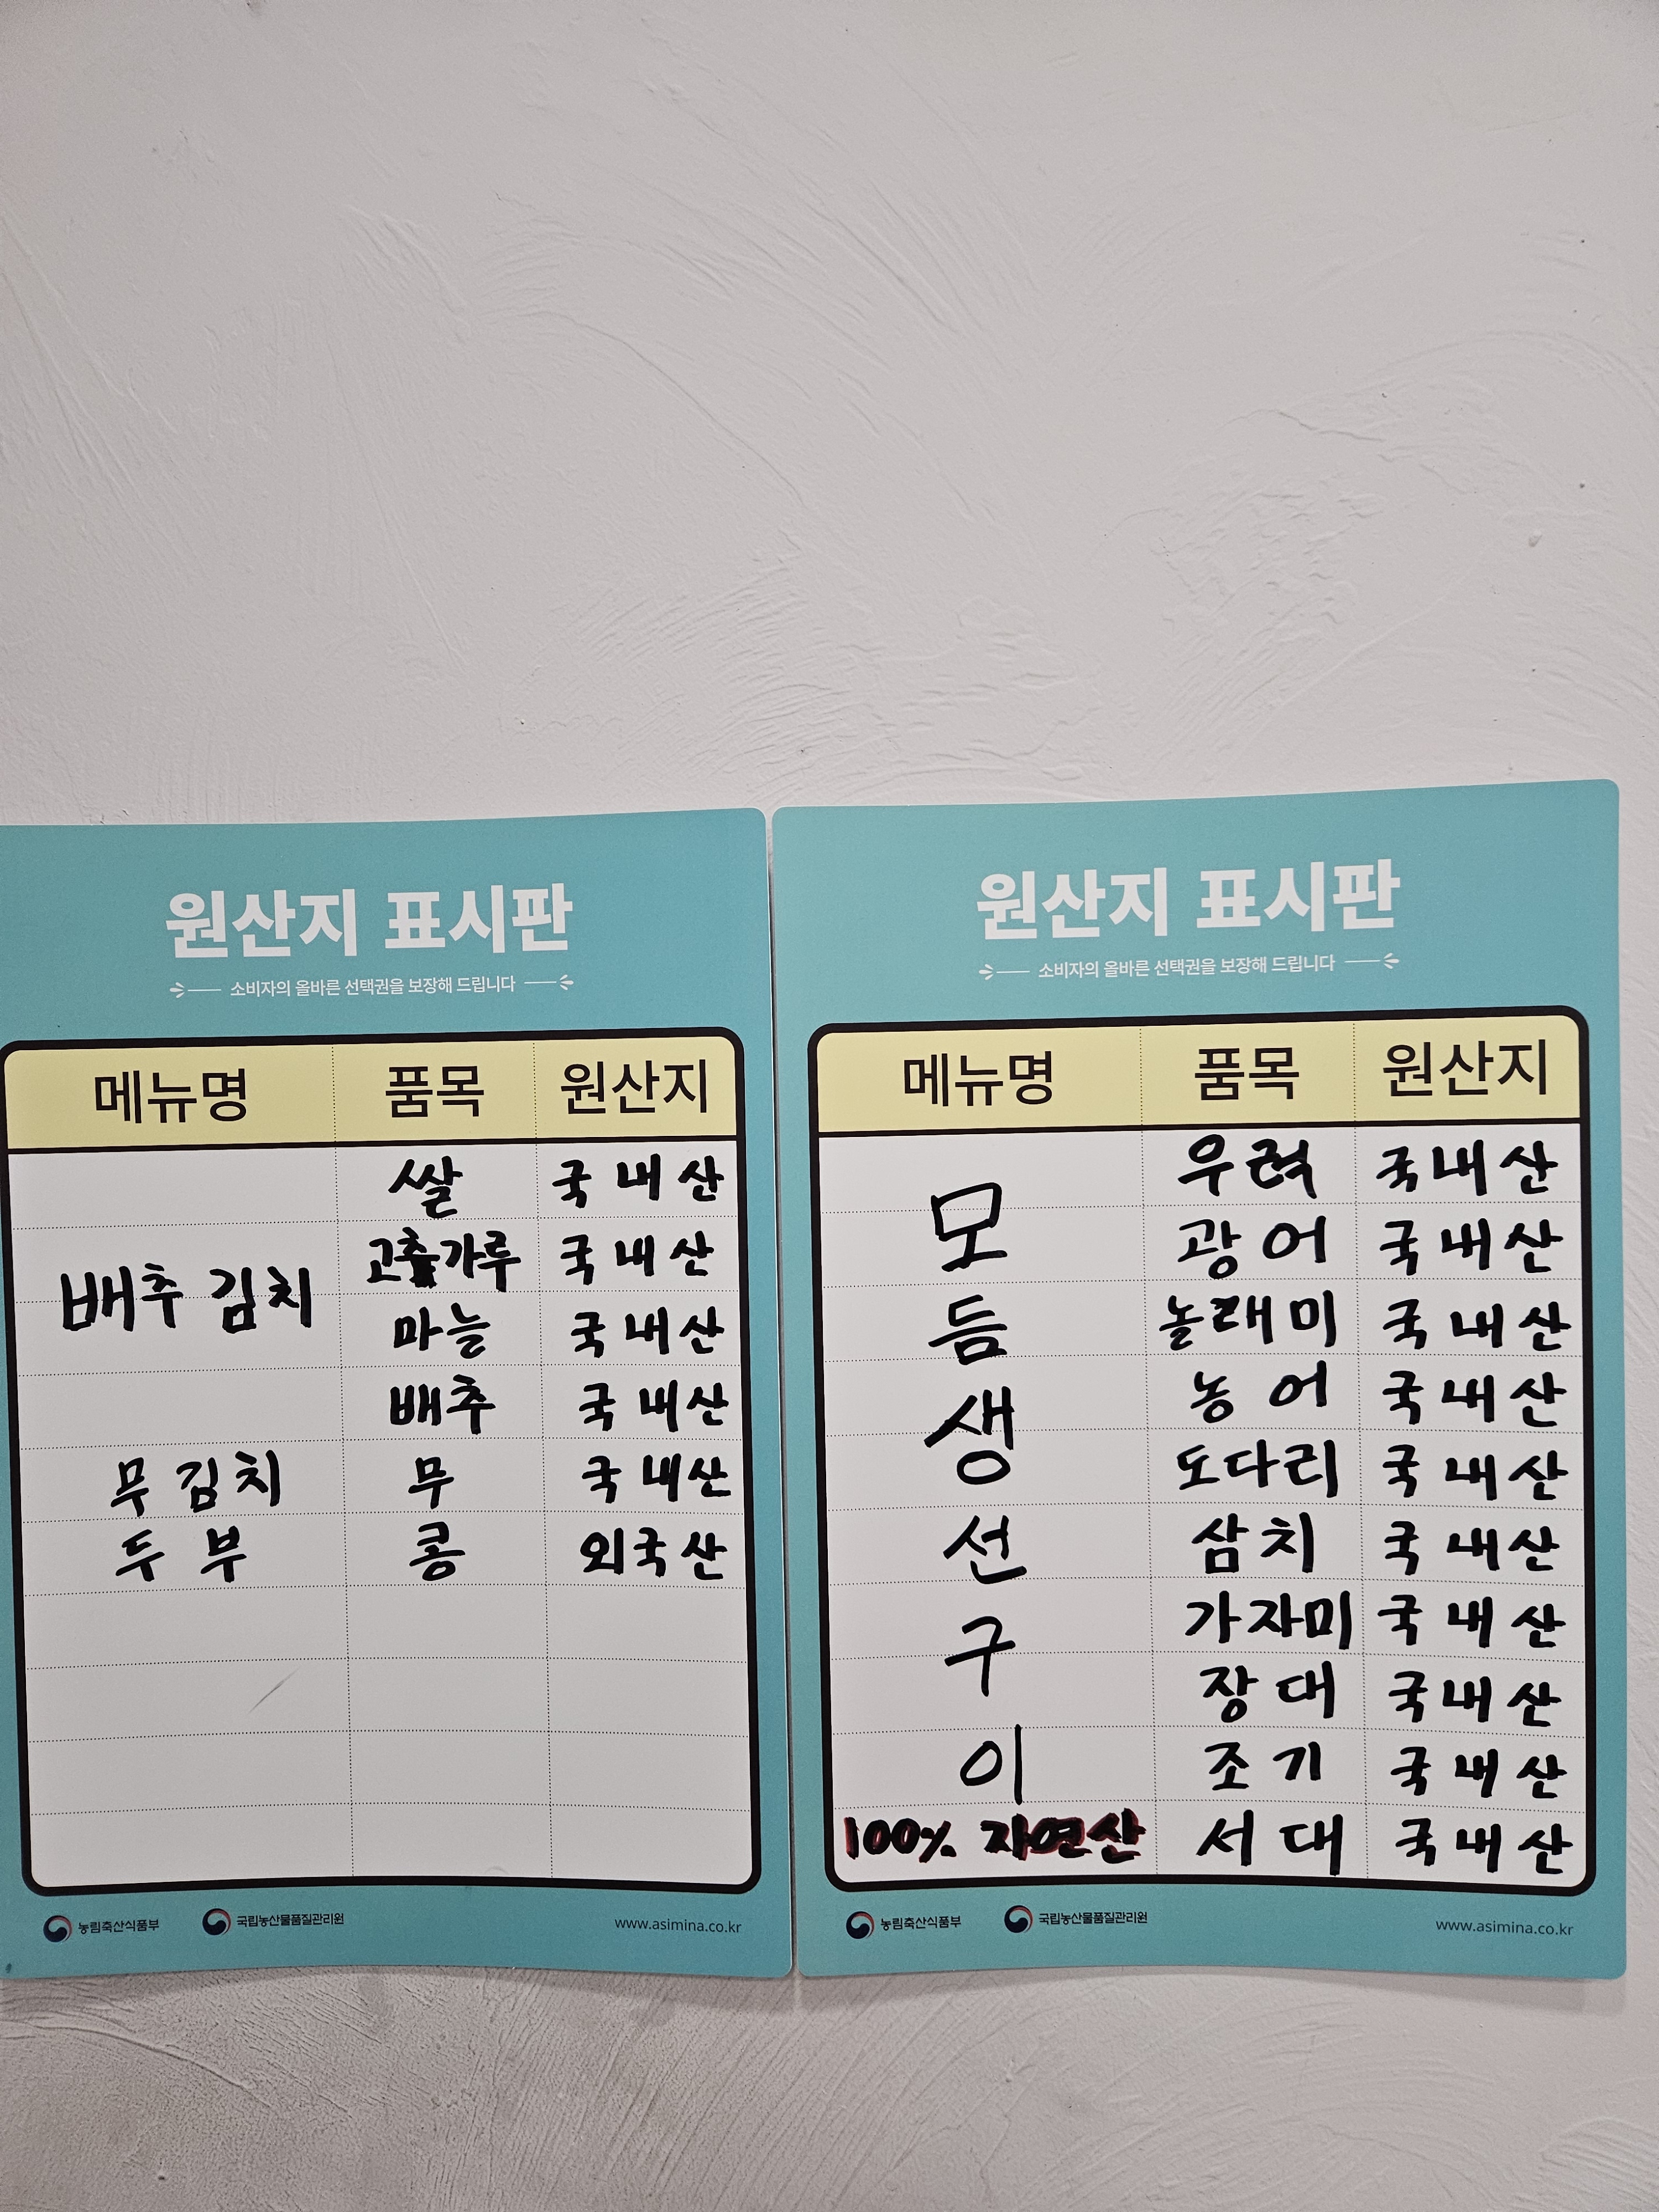 원산지 표시판
소비자의 올바른 선택권을 보장해 드립니다
메뉴명 품목 원산지
쌀 국내산
배추 김치
고춧가루 국내산
마늘 국내산
배추 국내산
무 김치 무 국내산
두부 콩 외국산
농림축산식품부 국립농산물품질관리원 www.asimina.co.kr
원산지 표시판
소비자의 올바른 선택권을 보장해 드립니다
메뉴명 품목 원산지
모듬생선구이
우럭 국내산
광어 국내산
놀래미 국내산
농어 국내산
도다리 국내산
삼치 국내산
가자미 국내산
장대 국내산
조기 국내산
100% 자연산 서대 국내산
농림축산식품부 국립농산물품질관리원 www.asimina.co.kr